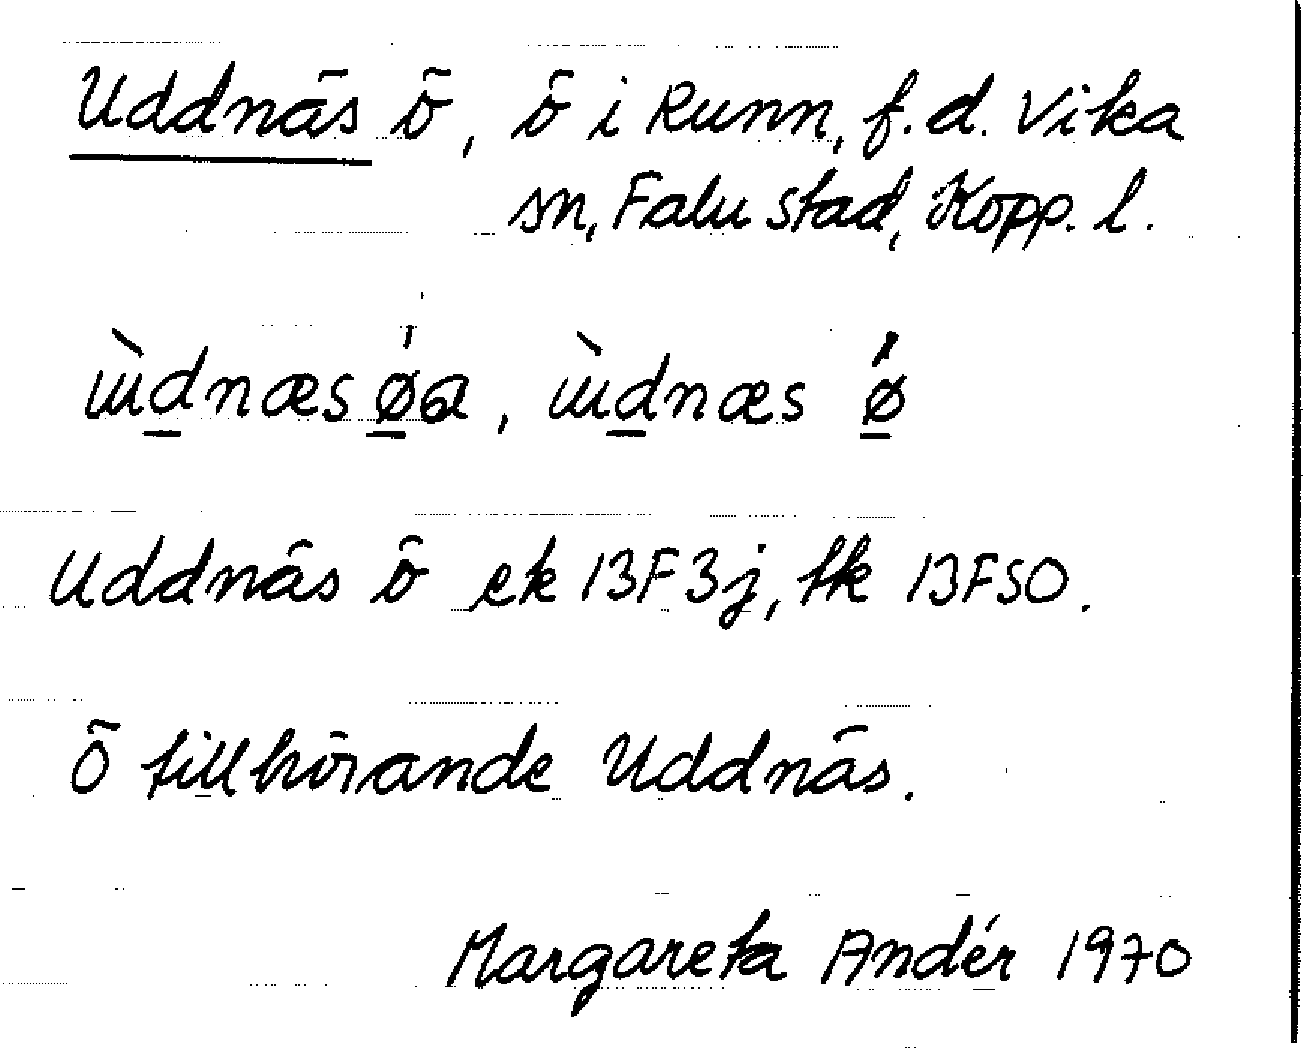 Uddnäs ö, ö i Runn, f.d. Vika
sn, Falu stad, Kopp. l.
ɯ̀dnæs ǿa, ɯ̀dnæs ǿ
Uddnäs ö ek 13F3j, tk 13FSO.
Ö tillhörande Uddnäs.
Margareta Andér 1970